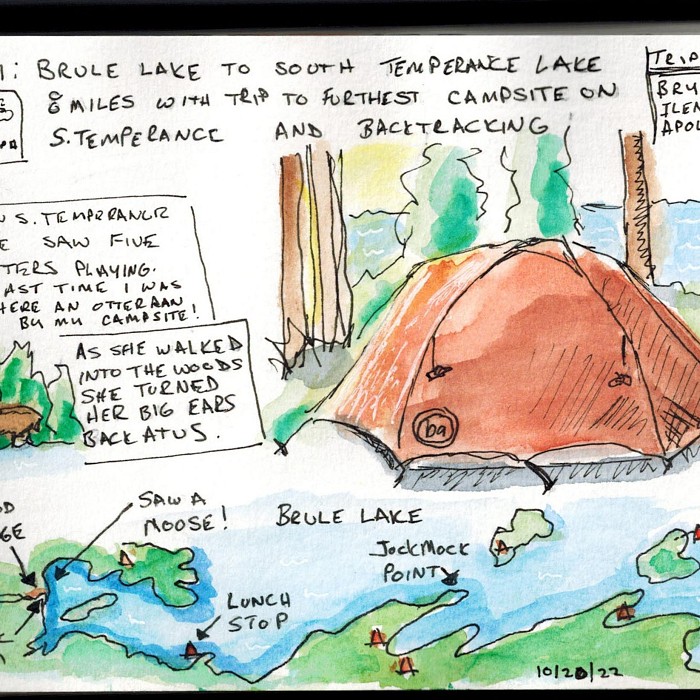 1: BRULE LAKE TO SOUTH TEMPERANCE LAKE
8 MILES WITH TRIP TO FURTHEST CAMPSITE ON
S. TEMPERANCE AND BACKTRACKING
TRIP
BRY
ILEN
APOL
N S. TEMPERANCE
E SAW FIVE
TTERS PLAYING.
AST TIME I WAS
HERE AN OTTER RAN
BY MY CAMPSITE!
AS SHE WALKED
INTO THE WOODS
SHE TURNED
HER BIG EARS
BACK AT US.
ba
SAW A
MOOSE!
BRULE LAKE
JOCKMOCK
POINT
LUNCH
STOP
10/20/22